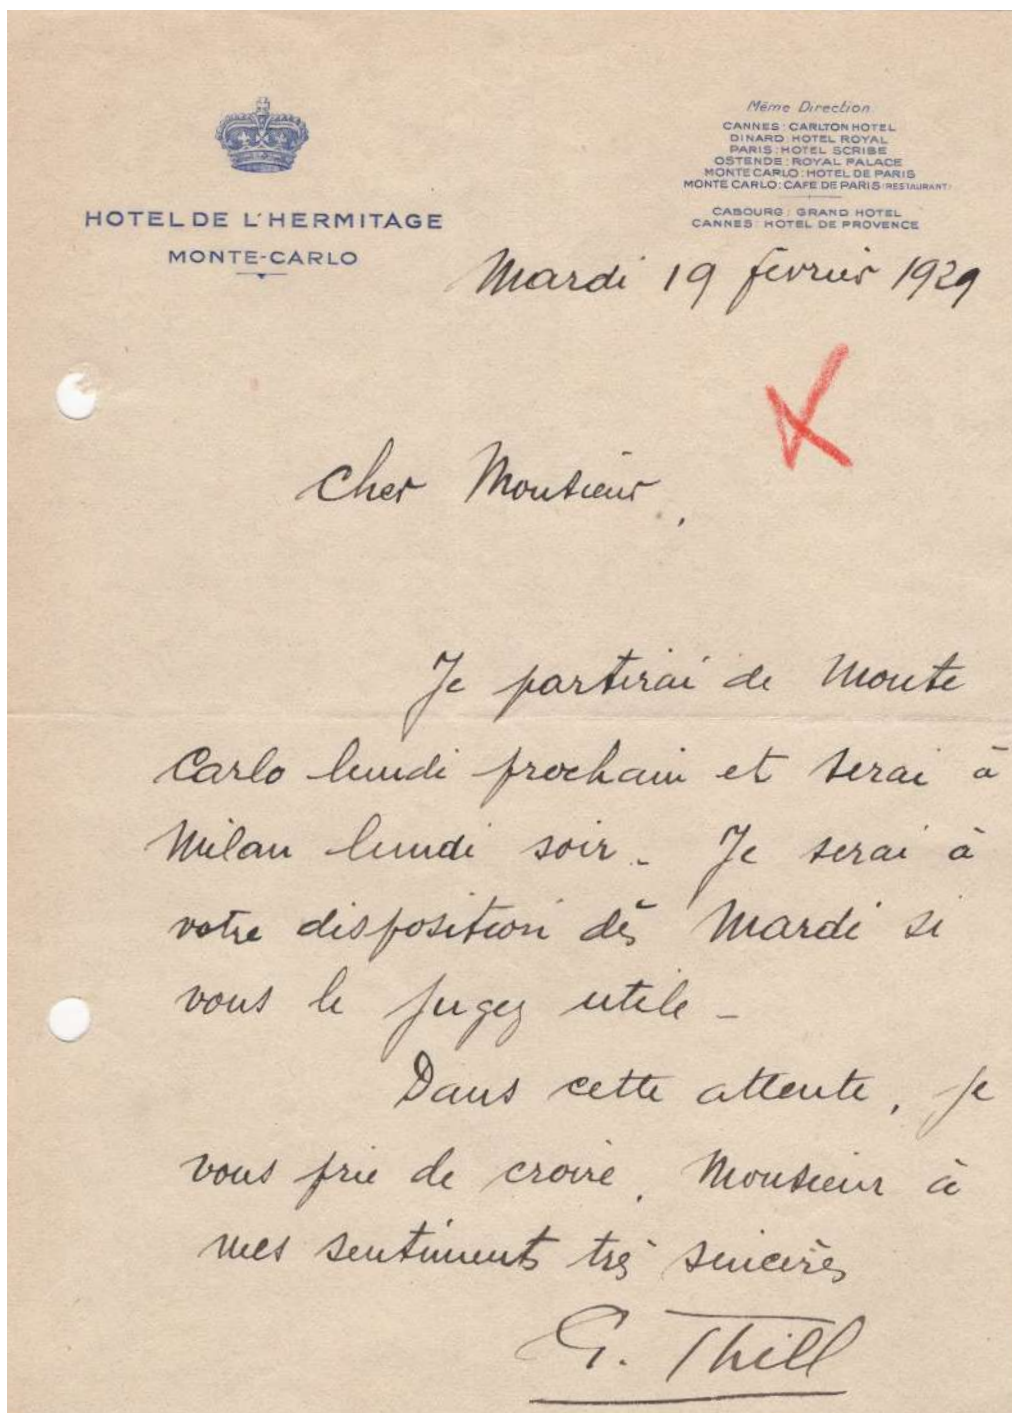 HOTEL DE L'HERMITAGE
MONTE-CARLO
Même Direction
CANNES: CARLTON HOTEL
DINARD: HOTEL ROYAL
PARIS: HOTEL SCRIBE
OSTENDE: ROYAL PALACE
MONTE CARLO: HOTEL DE PARIS
MONTE CARLO: CAFE DE PARIS (RESTAURANT)
CABOURG: GRAND HOTEL
CANNES: HOTEL DE PROVENCE
Mardi 19 février 1929
Cher Monsieur,
Je partirai de Monte
Carlo lundi prochain et serai à
Milan lundi soir. Je serai à
votre disposition dès Mardi si
vous le jugez utile -
Dans cette attente, je
vous prie de croire, Monsieur à
mes sentiments très sincères
G. Thill